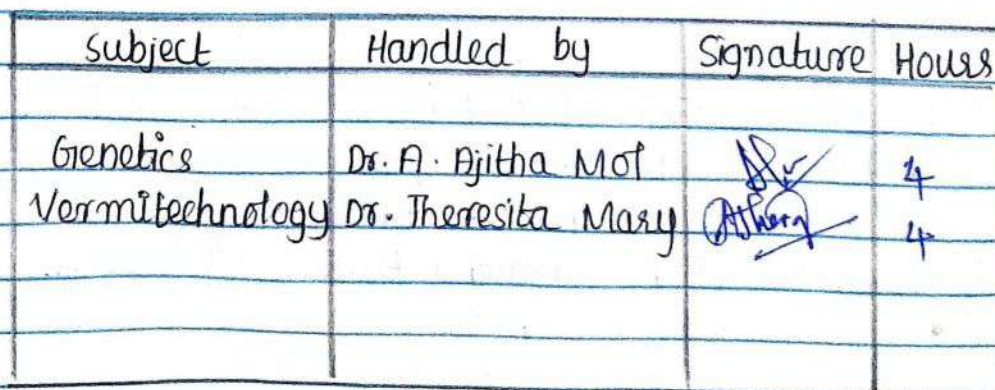 Subject Handled by Signature Hours
Genetics Dr. A. Ajitha Mol 4
Vermitechnology Dr. Theresita Mary 4